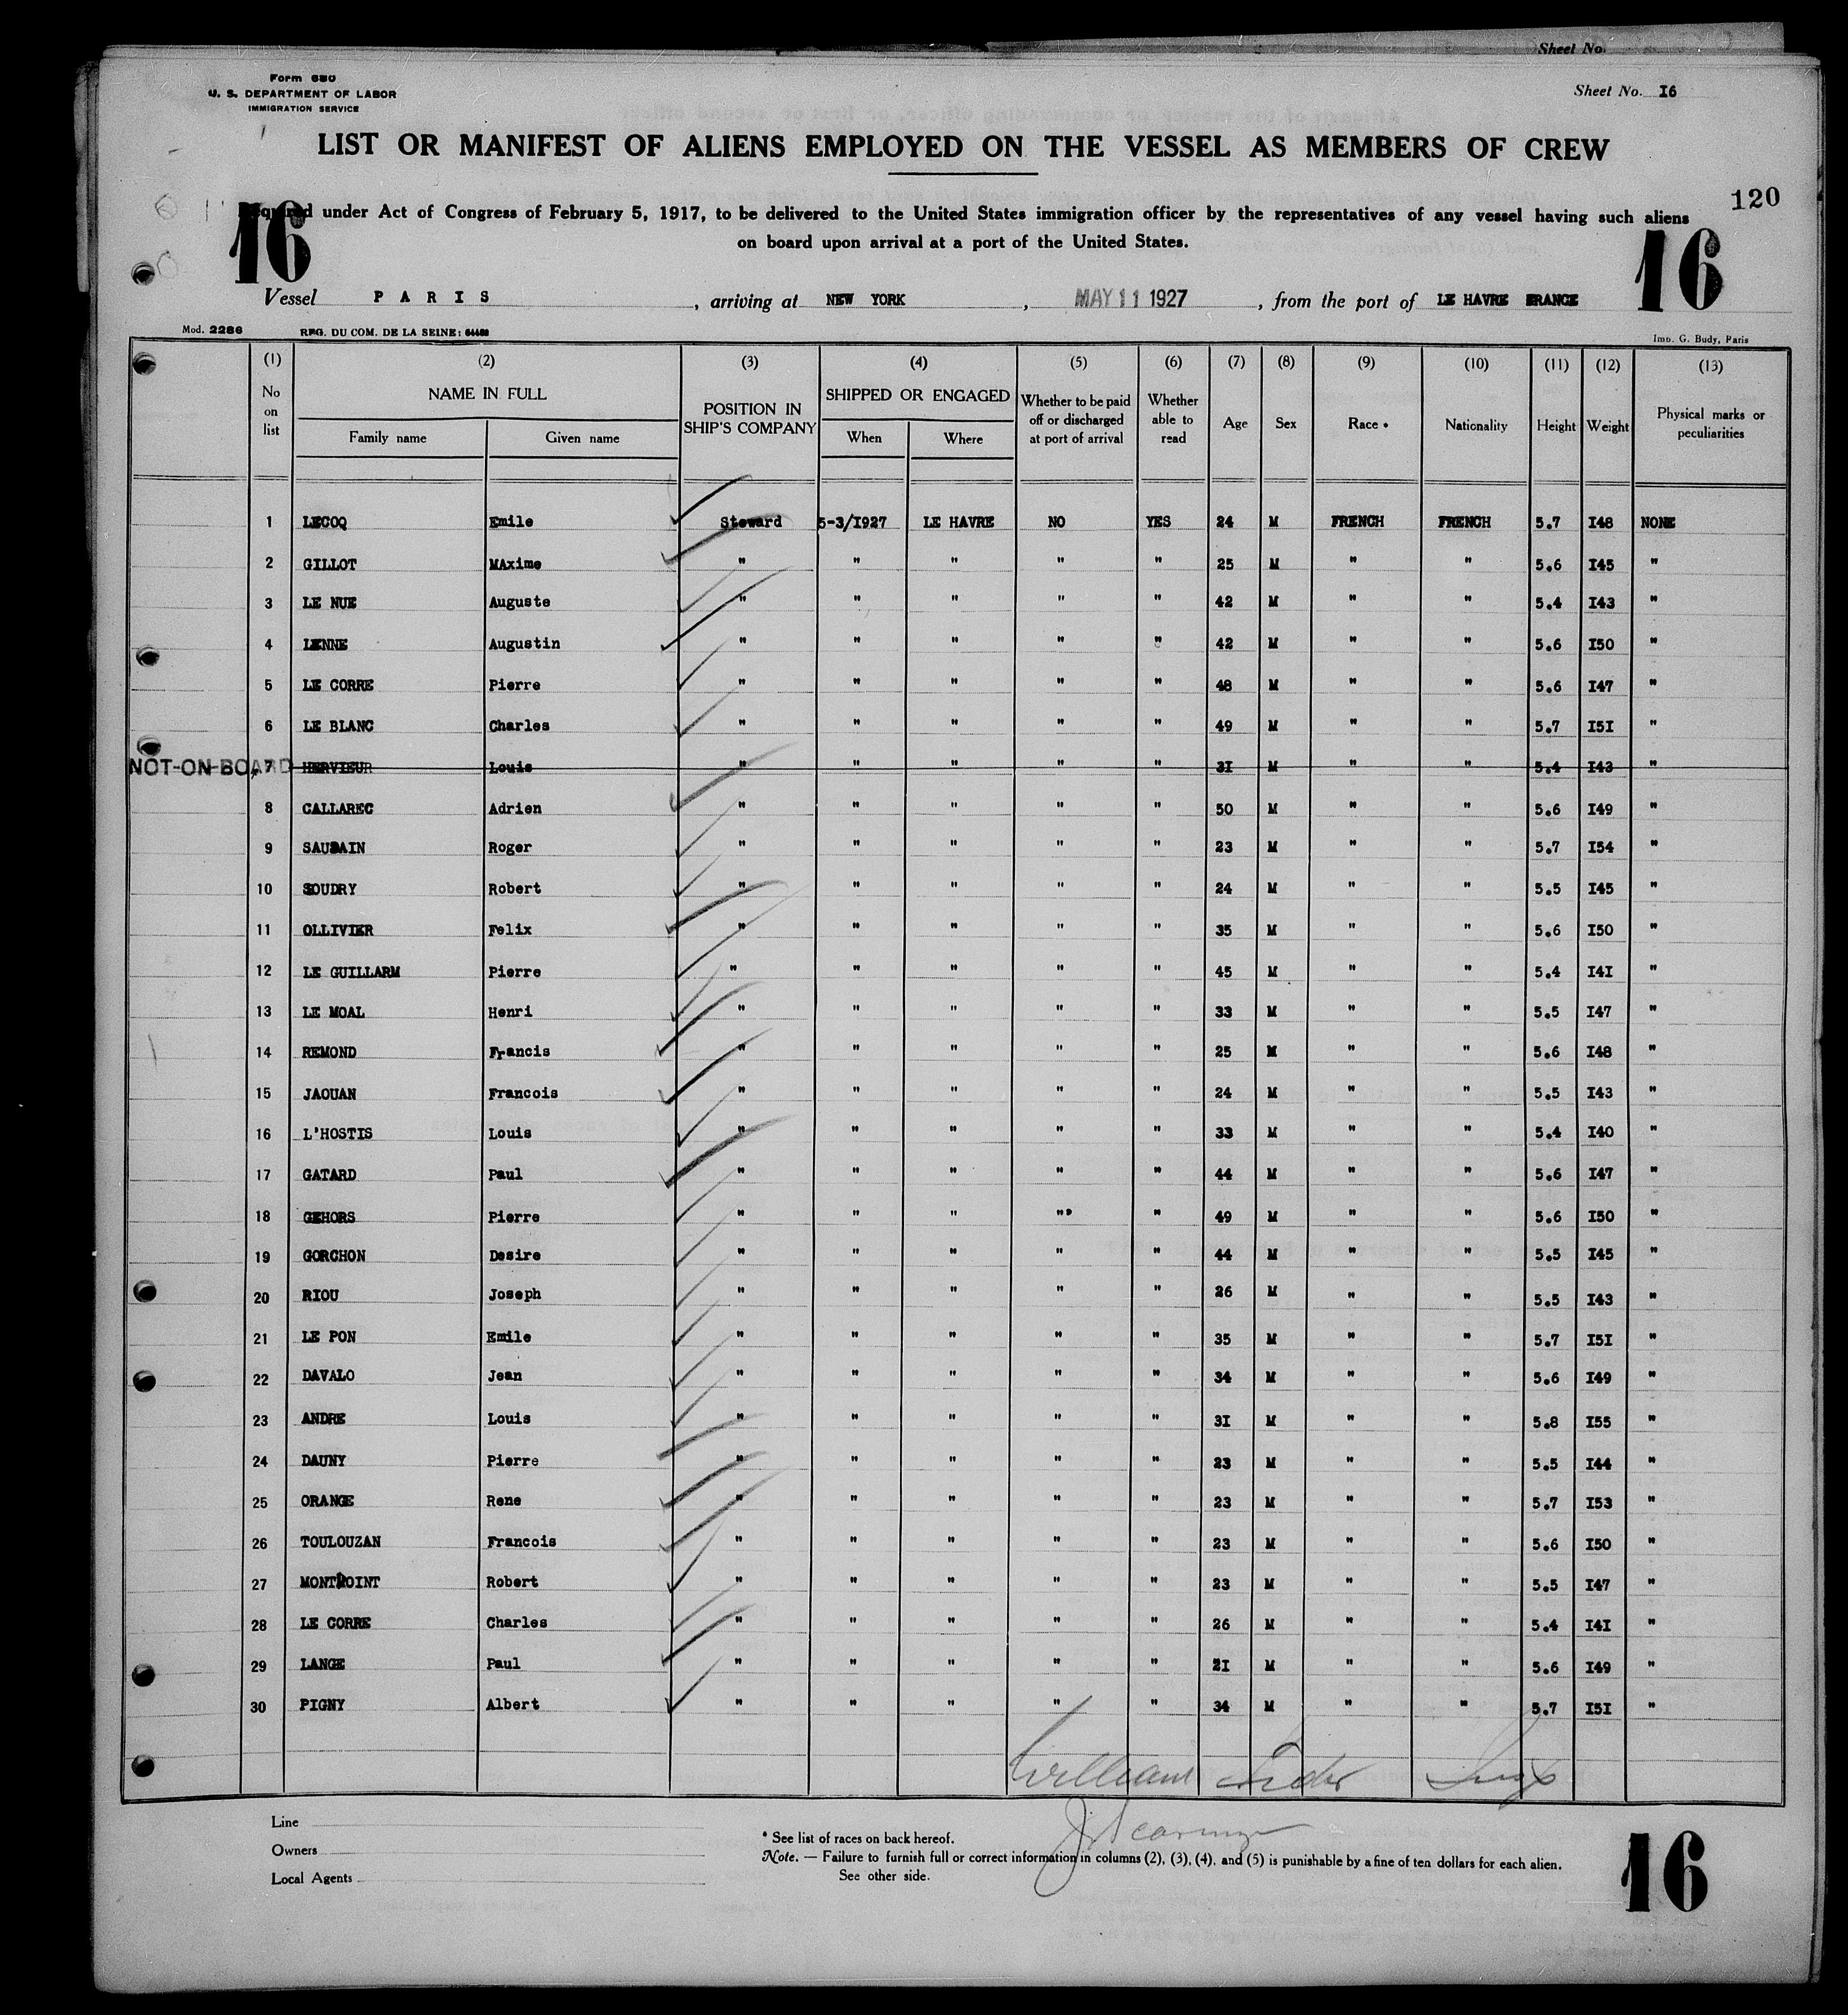 Sheet No.
Form 680
U. S. DEPARTMENT OF LABOR
IMMIGRATION SERVICE
Sheet No. I6
LIST OR MANIFEST OF ALIENS EMPLOYED ON THE VESSEL AS MEMBERS OF CREW
120
Required under Act of Congress of February 5, 1917, to be delivered to the United States immigration officer by the representatives of any vessel having such aliens
on board upon arrival at a port of the United States.
16 16
Vessel PARIS , arriving at NEW YORK , MAY 11 1927 , from the port of LE HAVRE FRANCE
Mod. 2286 REG. DU COM. DE LA SEINE: Imp. G. Budy, Paris
(1) (2) (3) (4) (5) (6) (7) (8) (9) (10) (11) (12) (13)
No on list NAME IN FULL Family name Given name POSITION IN SHIP'S COMPANY SHIPPED OR ENGAGED When Where Whether to be paid off or discharged at port of arrival Whether able to read Age Sex Race * Nationality Height Weight Physical marks or peculiarities
1 LECOQ Emile Steward 5-3/I927 LE HAVRE NO YES 24 M FRENCH FRENCH 5.7 I48 NONE
2 GILLOT MAxime " " " " " 25 M " " 5.6 I45 "
3 LE NUE Auguste " " " " " 42 M " " 5.4 I43 "
4 LENNE Augustin " " " " " 42 M " " 5.6 I50 "
5 LE CORRE Pierre " " " " " 48 M " " 5.6 I47 "
6 LE BLANC Charles " " " " " 49 M " " 5.7 I5I "
NOT-ON-BOARD 7 HERVIEUR Louis " " " " " 3I M " " 5.4 I43 "
8 CALLAREC Adrien " " " " " 50 M " " 5.6 I49 "
9 SAUDAIN Roger " " " " " 23 M " " 5.7 I54 "
10 SOUDRY Robert " " " " " 24 M " " 5.5 I45 "
11 OLLIVIER Felix " " " " " 35 M " " 5.6 I50 "
12 LE GUILLARM Pierre " " " " " 45 M " " 5.4 I4I "
13 LE MOAL Henri " " " " " 33 M " " 5.5 I47 "
14 REMOND Francis " " " " " 25 M " " 5.6 I48 "
15 JAOUAN Francois " " " " " 24 M " " 5.5 I43 "
16 L'HOSTIS Louis " " " " " 33 M " " 5.4 I40 "
17 GATARD Paul " " " " " 44 M " " 5.6 I47 "
18 GEHORS Pierre " " " " " 49 M " " 5.6 I50 "
19 GORCHON Desire " " " " " 44 M " " 5.5 I45 "
20 RIOU Joseph " " " " " 26 M " " 5.5 I43 "
21 LE PON Emile " " " " " 35 M " " 5.7 I5I "
22 DAVALO Jean " " " " " 34 M " " 5.6 I49 "
23 ANDRE Louis " " " " " 3I M " " 5.8 I55 "
24 DAUNY Pierre " " " " " 23 M " " 5.5 I44 "
25 ORANGE Rene " " " " " 23 M " " 5.7 I53 "
26 TOULOUZAN Francois " " " " " 23 M " " 5.6 I50 "
27 MONTROINT Robert " " " " " 23 M " " 5.5 I47 "
28 LE CORRE Charles " " " " " 26 M " " 5.4 I4I "
29 LANGE Paul " " " " " 2I M " " 5.6 I49 "
30 PIGNY Albert " " " " " 34 M " " 5.7 I5I "
William
Line
Owners
Local Agents
* See list of races on back hereof.
Note. — Failure to furnish full or correct information in columns (2), (3), (4), and (5) is punishable by a fine of ten dollars for each alien.
See other side.
16